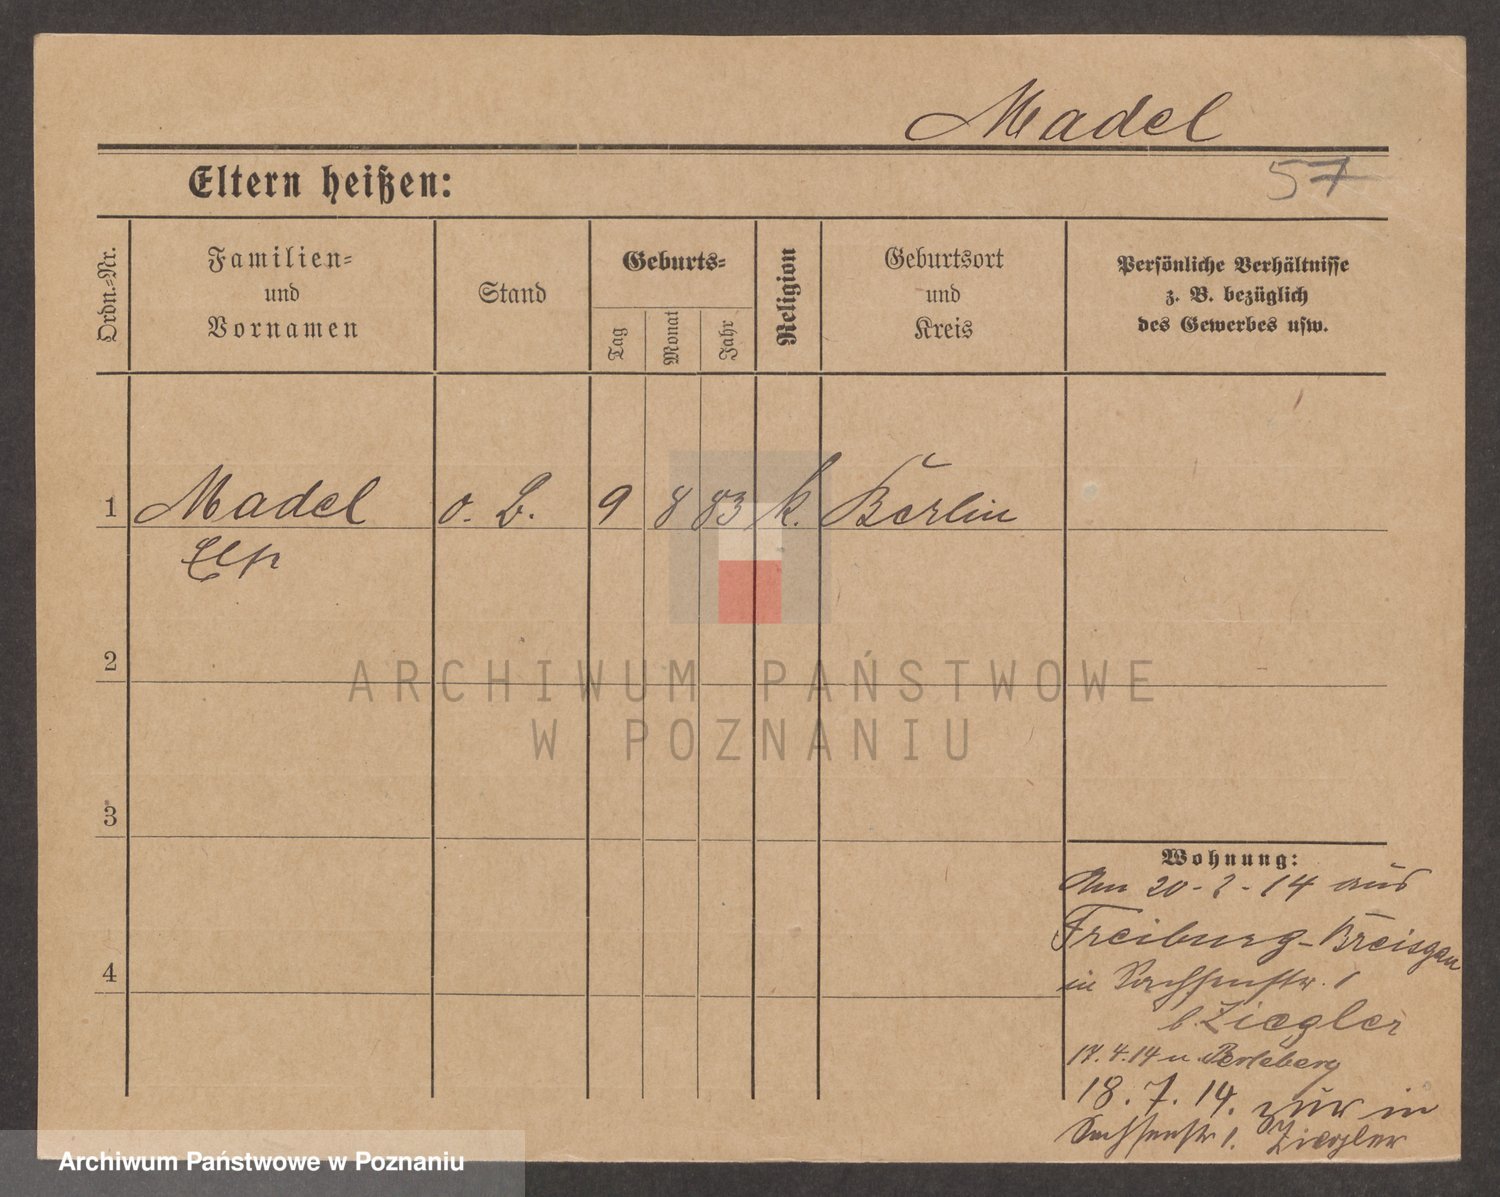 Madel
57
Eltern heißen:
Ordn.-Nr.
Familien-
und
Vornamen
Stand
Geburts-
Tag
Monat
Jahr
Religion
Geburtsort
und
Kreis
Persönliche Verhältnisse
z. B. bezüglich
des Gewerbes usw.
1 Madel o. B. 9 8 83 k. Berlin
2
3
4
Wohnung:
Am 20-2-14 aus
Freiburg-Breisgau
in Sachsenstr. 1
b. Ziegler
17.4.14 n. Perleberg
18.7.14. zur in
Sachsenstr 1. Ziegler
ARCHIWUM PAŃSTWOWE
W POZNANIU
Archiwum Państwowe w Poznaniu